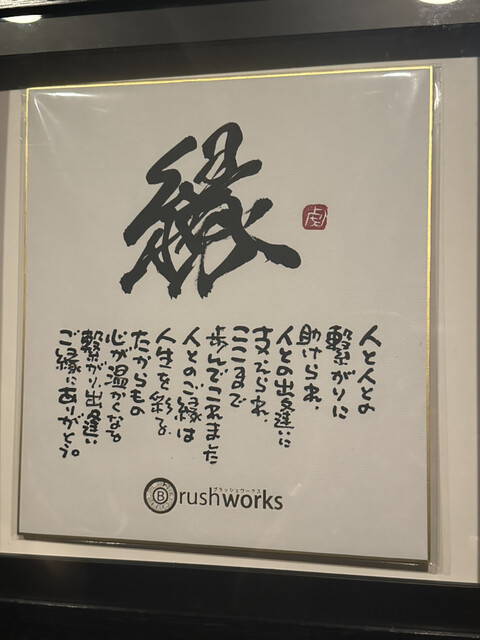 縁
劇
人と人との
繋がりに
助けられ、
人との出逢いに
支えられ、
ここまで
歩んでこれました
人とのご縁は
人生を彩る
たからもの
心が温かくなる
繋がり出逢い
ご縁にありがとう。
ブラッシュワークス
Brushworks